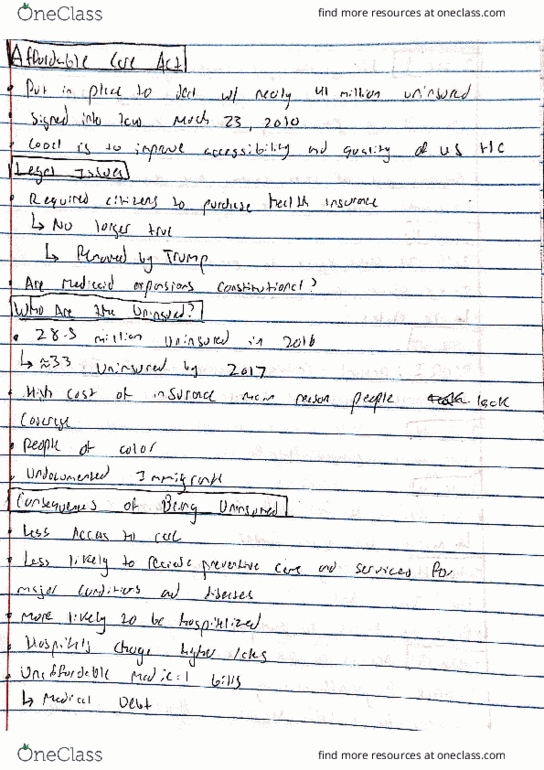 OneClass
find more resources at oneclass.com
Affordable Care Act
• Put in place to deal w/ nearly 41 million uninsured
• Signed into law March 23, 2010
• Goal is to improve accessibility and quality of US HC
Legal Issues
• Required citizens to purchase health insurance
↳ No longer true
↳ Removed by Trump
• Are Medicaid expansions constitutional?
Who Are the Uninsured?
• 28.5 million uninsured in 2016
↳ ≈33 uninsured by 2017
• High cost of insurance main reason people lack
coverage
• People of color
• Undocumented Immigrants
Consequences of Being Uninsured
• Less Access to care
• Less likely to receive preventive care and services for
major conditions and diseases
• More likely to be hospitalized
• Hospitals charge higher rates
• Unaffordable medical bills
↳ Medical Debt
OneClass
find more resources at oneclass.com